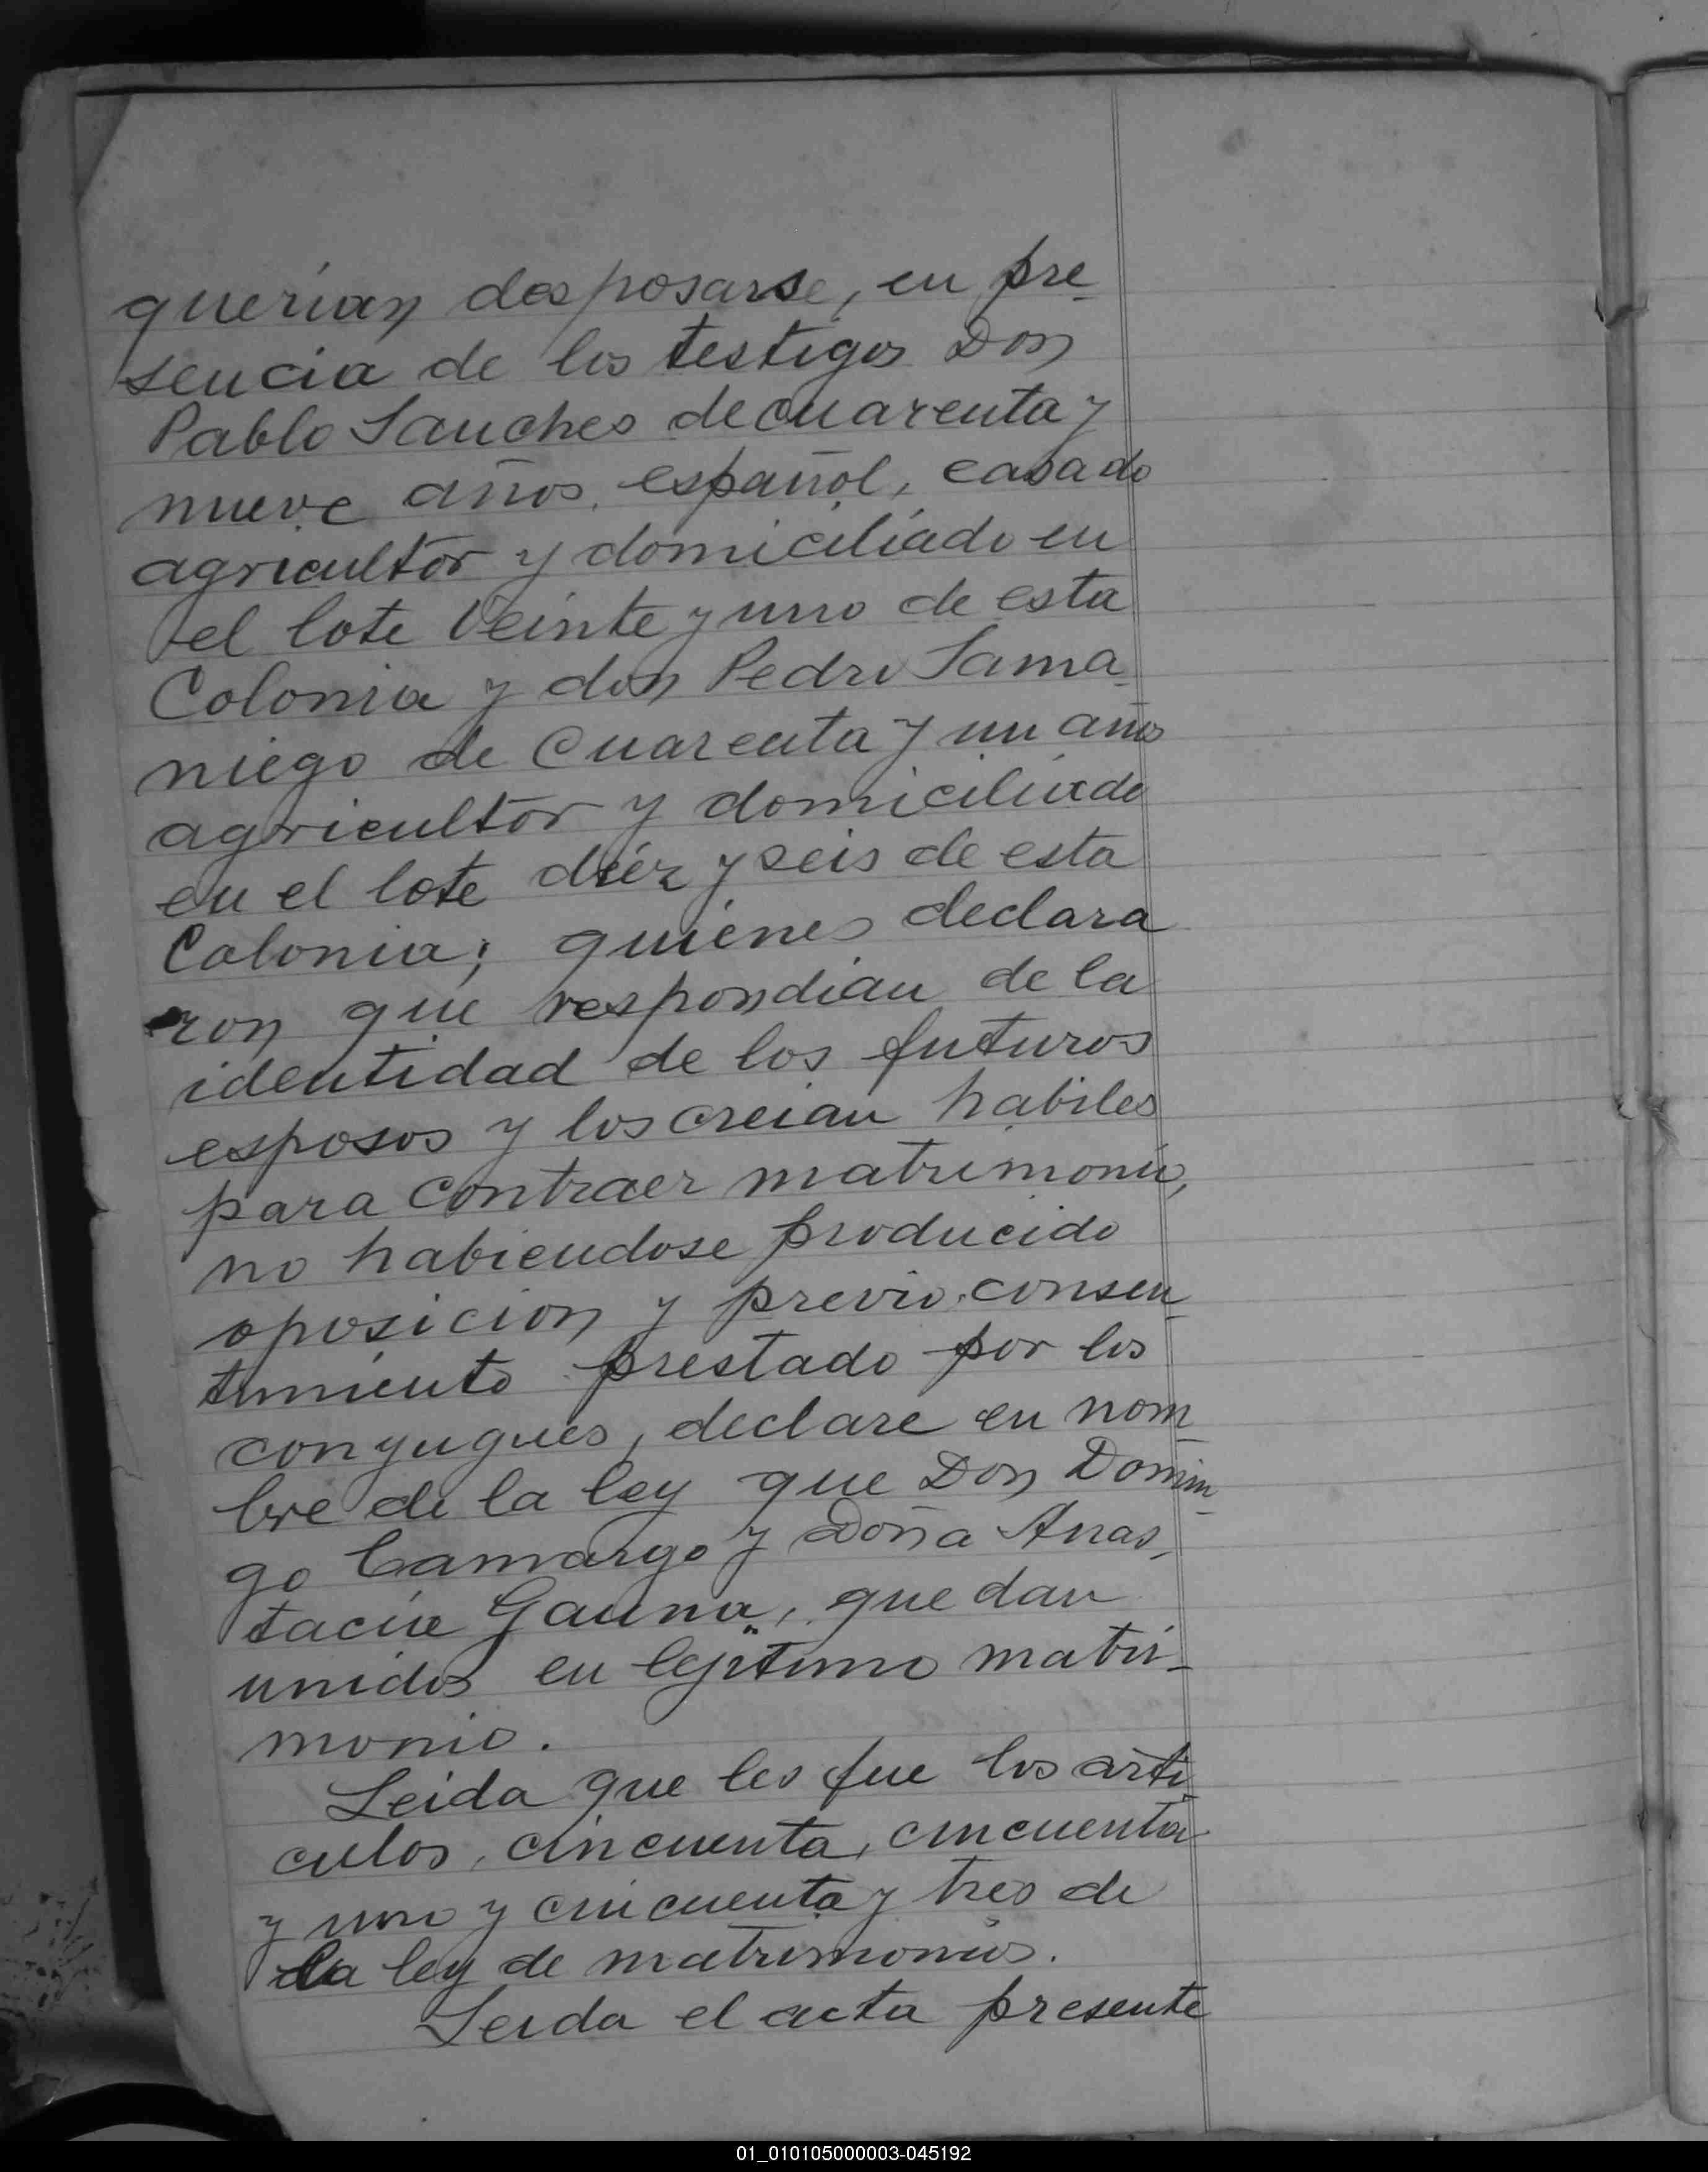 querían desposarse, en pre-
sencia de los testigos Don
Pablo Sanches de cuarenta y
nueve años, español, casado
agricultor y domiciliado en
el lote veinte y uno de esta
Colonia y don Pedro Sama-
niego de cuarenta y un años
agricultor y domiciliado
en el lote diéz y seis de esta
Colonia; quienes declara
ron que respondian de la
identidad de los futuros
esposos y los creian habiles
para contraer matrimonio,
no habiendose producido
oposicion y previo consen-
timiento prestado por los
conyugues, declare en nom-
bre de la ley que Don Domin-
go Camargo y Doña Anas-
tacia Gauna, quedan
unidos en lejitimo matri-
monio.
Leida que les fue los arti-
culos, cincuenta, cincuenta
y uno y cincuenta y tres de
la ley de matrimonios.
Leida el acta presente
01_010105000003-045192